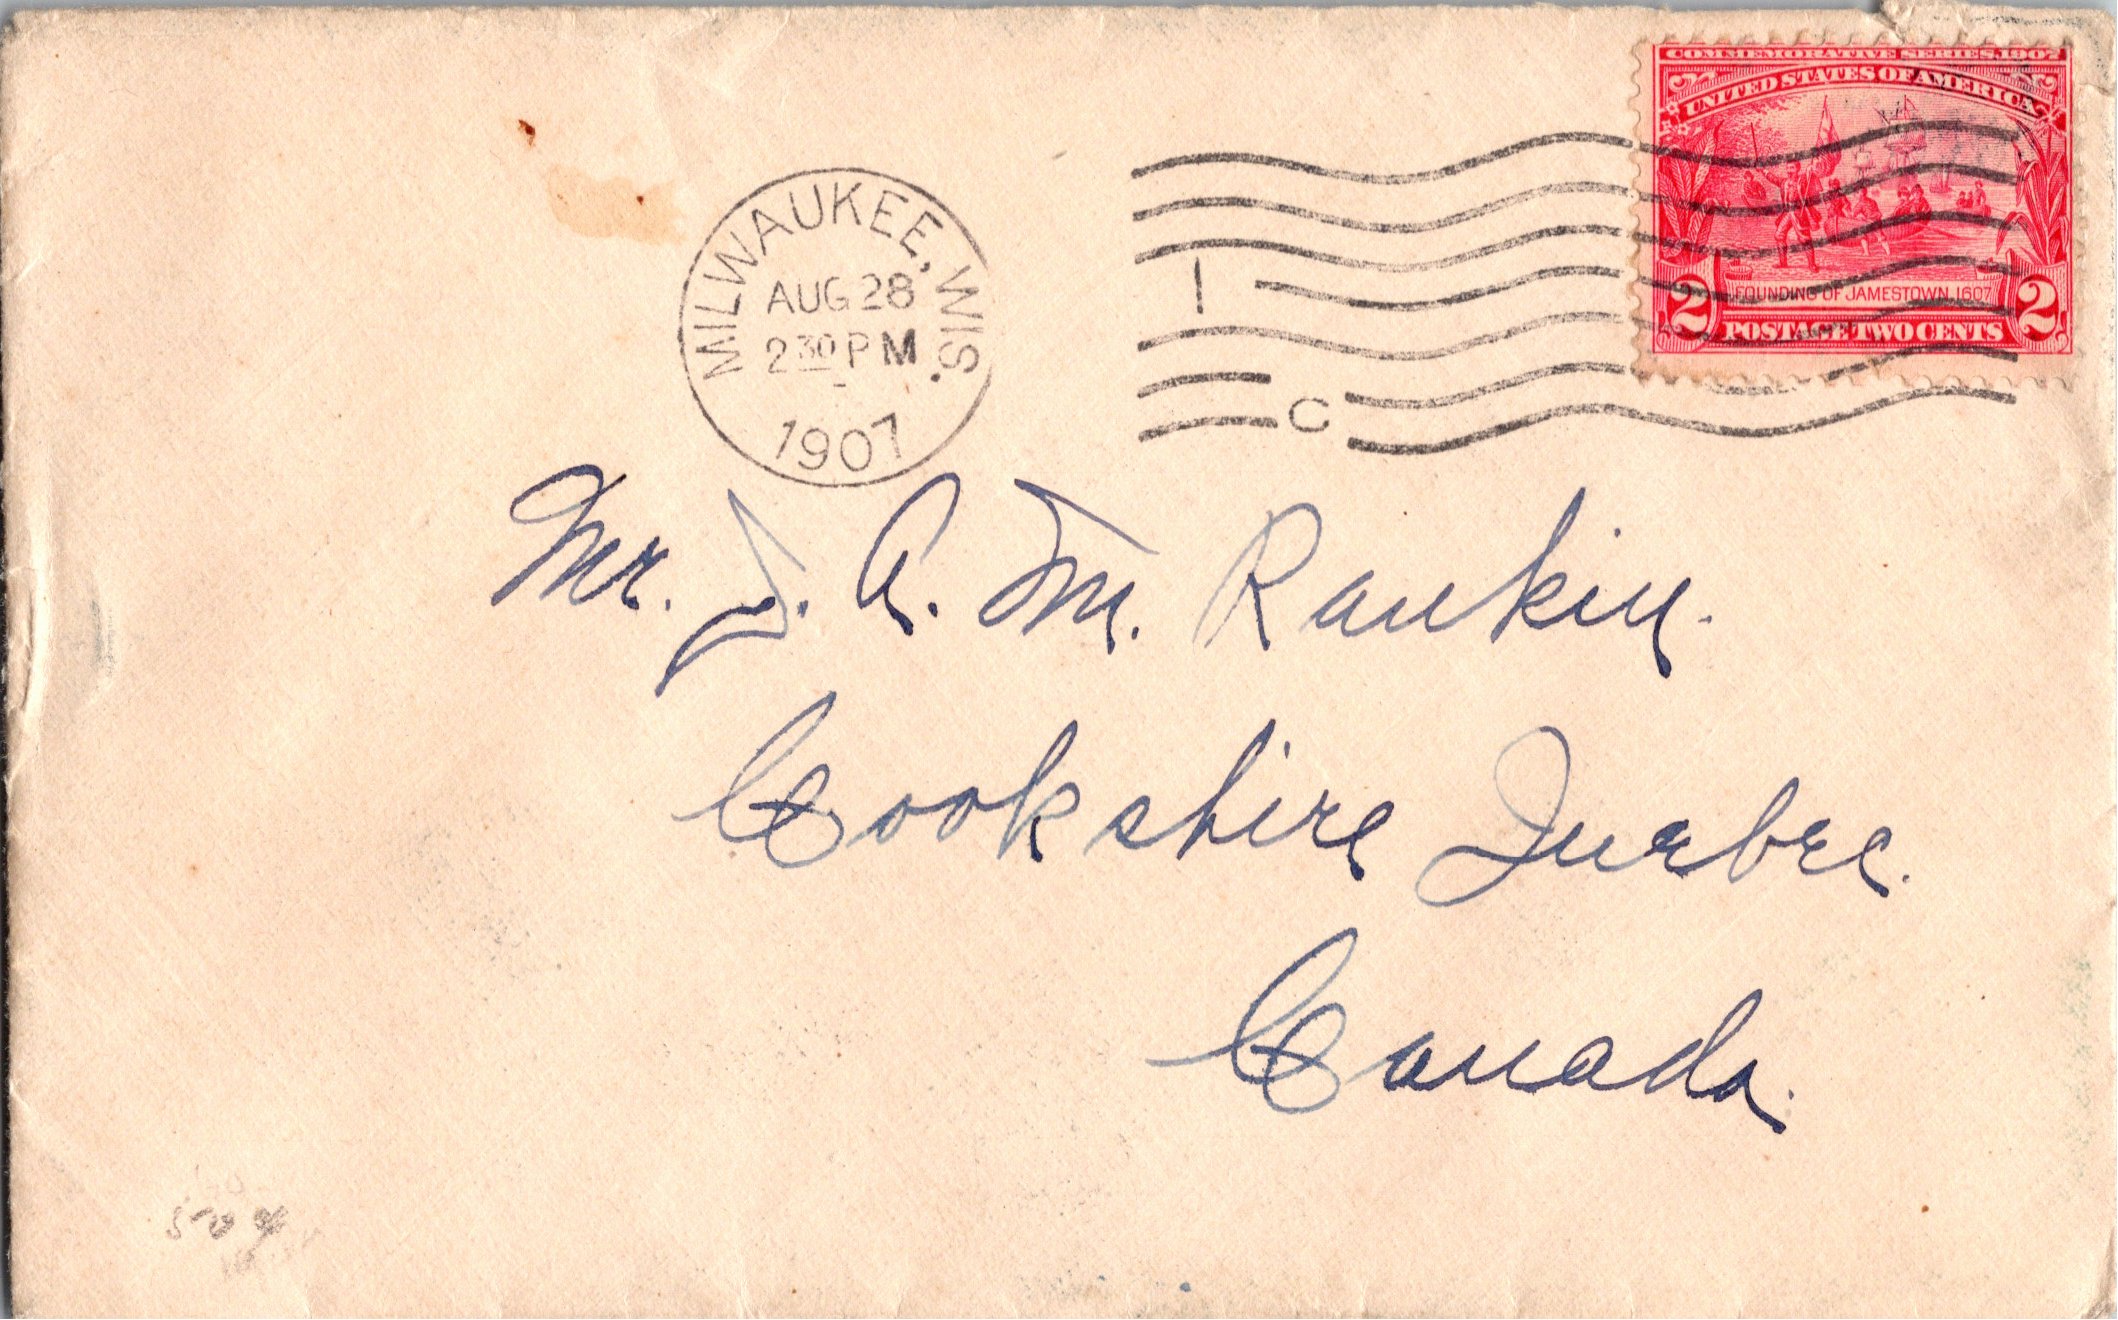 COMMEMORATIVE SERIES, 1907
UNITED STATES OF AMERICA
FOUNDING OF JAMESTOWN, 1607
2 POSTAGE TWO CENTS 2
MILWAUKEE, WIS.
AUG 28
2 30 PM
1907
1
C
Mr. J. A. M. Rankin.
Cookshire Quebec.
Canada.